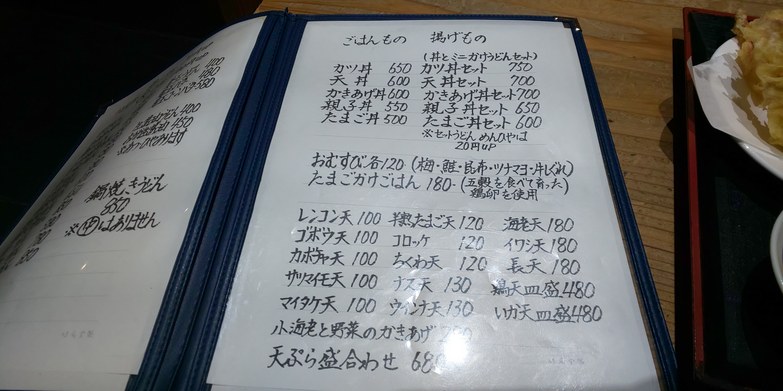 ごはんもの　揚げもの
(丼とミニかけうどんセット)
カツ丼 650 カツ丼セット 750
天丼 600 天丼セット 700
かきあげ丼 600 かきあげ丼セット 700
親子丼 550 親子丼セット 650
たまご丼 500 たまご丼セット 600
※セットうどん めんひやは
20円UP
おむすび各120 (梅・鮭・昆布・ツナマヨ・牛しぐれ)
たまごかけごはん 180- (五穀を食べて育った
鶏卵を使用)
レンコン天 100 半熟たまご天 120 海老天 180
ゴボウ天 100 コロッケ 120 イワシ天 180
カボチャ天 100 ちくわ天 120 長天 180
サツマイモ天 100 ナス天 130 鶏天皿盛 480
マイタケ天 100 ウインナ天 130 いか天皿盛 480
小海老と野菜のかきあげ
天ぷら盛合わせ 680
400
450
鍋焼きうどん
※はありません